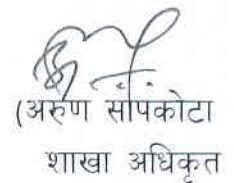 (अरुण सापकोटा
शाखा अधिकृत